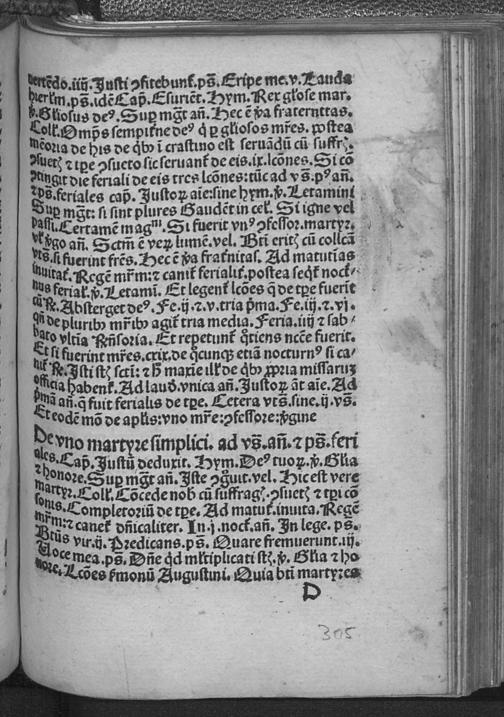 uertēdo.iiij. Justi ɔfitebunt̄.ps̄. Eripe me.v. Lauda
hierl'm.ps̄.idē Cap̄. Esuriēt. Hym. Rex gl'ose mar.
ꝟ. Gl'iosus de⁹. Suꝑ mgt̄ an̄. Hec ē ꝟa fraternitas.
Coll'. Omp̄s sempit̄ne de⁹ q̇ ꝑ gl'iosos mr̄es. postea
mēoria de his de qb⁹ ī crastino est seruādū cū suffrꝭ.
ɔsuetꝭ ⁊ tꝑe ɔsueto sic seruant̄ de eis.ix. lcōnes. Si cō
ɔtingit die feriali de eis tres lcōnes: tūc ad vs̄.p⁹ an̄.
⁊ ps̄.feriales cap̄. Justorꝝ aīe: sine hym. ꝟ. Letamini
Suꝑ mgt̄: si sint plures Gaudēt in cel'. Si igne vel
passi. Certamē mag^m. Si fuerit vn⁹ ɔfessor. martyr.
vl' ꝟgo an̄. Sctm̄ ē verꝝ lumē. vel. Bti eritꝭ cū collcā
vts̄. si fuerint frēs. Hec ē ꝟa frat̄nitas. Ad matutias
inuitat̄. Regē mr̄m: ⁊ canit̄ ferialit̄. postea seqt̄ noct̄-
nus ferial'. ꝟ. Letamī. Et legent̄ lcōes q̄ de tꝑe fuerit
cū ℟. Absterget de⁹. Fe.ij.⁊.v. tria p̄ma. Fe.iij.⁊.vj.
qn̄ de plurib⁹ mr̄ib⁹ agit̄ tria media. Feria.iiij ⁊ sab-
bato vltīa Rn̄soria. Et repetunt̄ q̇tiens ncēe fuerit.
Et si fuerint mr̄es.crix. de q̇cunqꝫ etiā nocturn⁹ si ca-
nit̄ ℟. Justi stꝭ sctī: ⁊ h̄ maxīe ill' de qb⁹ ꝓpria missarum
officia habent̄. Ad laud. vnica an̄. Justorꝝ āt aīe. Ad
p̄mā an̄. q̄ fuit ferialis de tꝑe. Cetera vts̄. sine.ij.vs̄.
Et eodē mō de ap'lis: vno mr̄e: ɔfessore: ꝟgine
De vno martyre simplici. ad vs̄.an̄. ⁊ ps̄.feri
ales. Cap̄. Justū deduxit. Hym. De⁹ tuorꝝ. ꝟ. Gl'ia
⁊ honore. Suꝑ mgt̄ an̄. Iste ɔgͦuit. vel. Hic est vere
martyr. Coll'. Cōcede nob̄ cū suffragꝭ. ɔsuetꝭ ⁊ tꝑi cō
sonis. Completoriū de tꝑe. Ad matut̄. inuita. Regē
mr̄m: ⁊ canet̄ dn̄icaliter. In.j. noct̄. an̄. In lege. ps̄.
Btūs vir.ij. Predicans. ps̄. Quare fremuerunt.iij.
Uoce mea. ps̄. Dn̄e qd m'ltiplicati stꝭ. ꝟ. Gl'ia ⁊ ho
nore. Lcōes s̄monū Augustini. Quia bti martyres
D
305